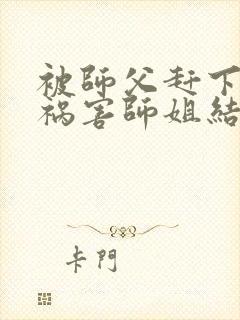 被師父赶下
祸害師姐結
卡門